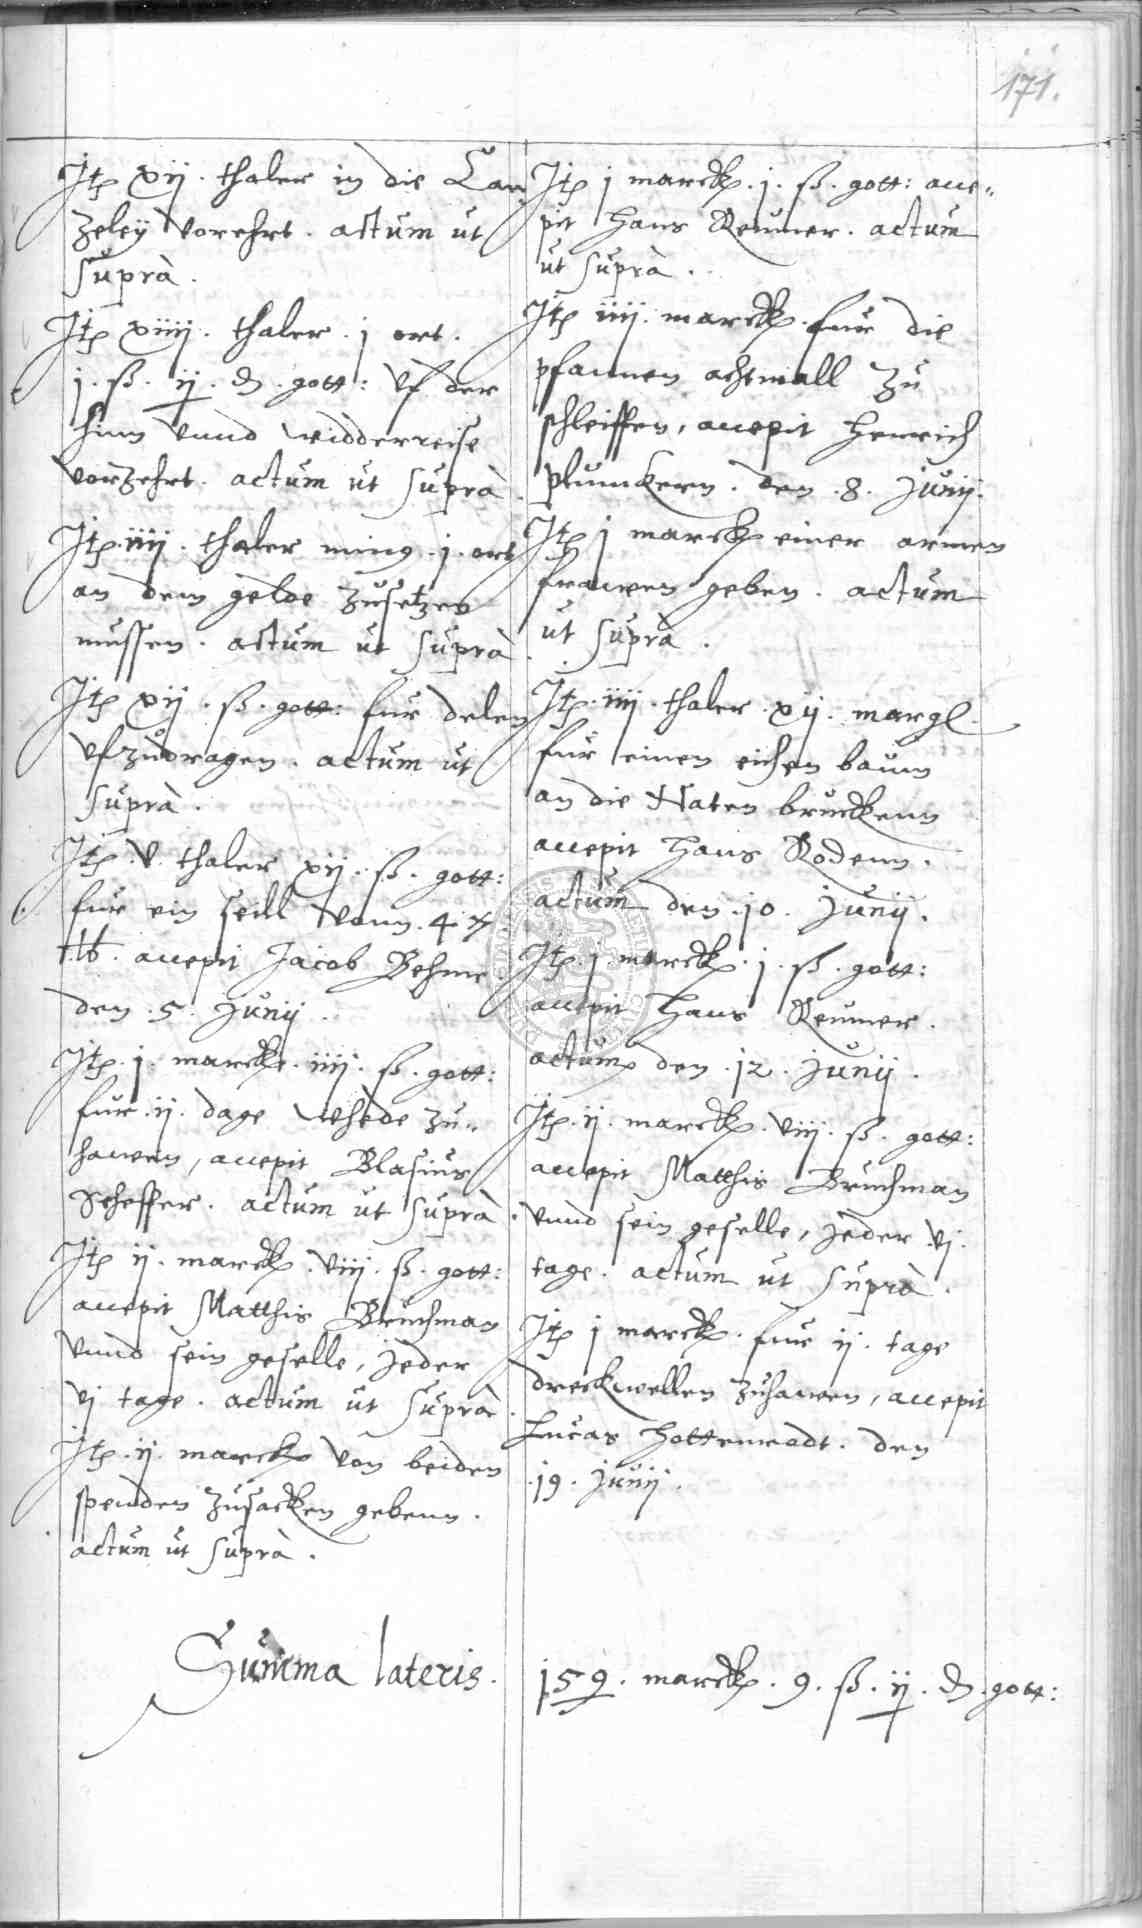 171.
Itp xij. thaler in die Can
zeleÿ vorehrt. actum ut
suprà.
Itp xiiij. thaler. j ort.
j. ß. ij. d. gott: vf der
hinn vnnd widderreise
vorzehrt. actum ut suprà.
Itp. iiij. thaler ming. j. ort
an dem gelde zusetzen
mussen. actum ut suprà.
Itp xij. ß. gott: fur delen
vfzudragen. actum ut
suprà.
Itp. v. thaler xij. ß. gott:
fur ein seill vonn. 4
lb. accepit Jacob Behme
den. 5. Junij.
Itp. j. marck. iiij. ß. gott:
fur. ij. dage whede zu„
hawen, accepit Blasius
Scheffer. actum ut suprà.
Itp ij. marck. viij. ß. gott:
accepit Matthis Bruchman
vnnd sein geselle, jeder
vj tage. actum ut suprà.
Itp. ij. marck von beiden
spenden zusacken gebenn.
actum ut suprà.
Itp j marck. j. ß. gott: acce„
pit Hans Reumer. actum
ut suprà.
Itp iiij. marck. fur die
pfannen achtmall zu
schleiffen, accepit Henrich
Plumckern. den. 8. Junij.
Itp j marck einer armen
frawen geben. actum
ut suprà.
Itp. iiij. thaler. xij. margl.
fur einen eichen baum
an die Naten bruckenn
accepit Hans Rodenn.
actum den. 10. Junij.
Itp. j. marck. j. ß. gott:
accepit Hans Reumer.
actum den. 12. Junij.
Itp. ij. marck. viij. ß. gott:
accepit Matthis Bruchman
vnnd sein geselle, jeder vj.
tage. actum ut suprà.
Itp j marck. fur ij. tage
dreckwellen zuhawen, accepit
Lucas Hottenrodt. den
.19. Junij.
Summa lateris. 159. marck. 9. ß. ij. d. gott: